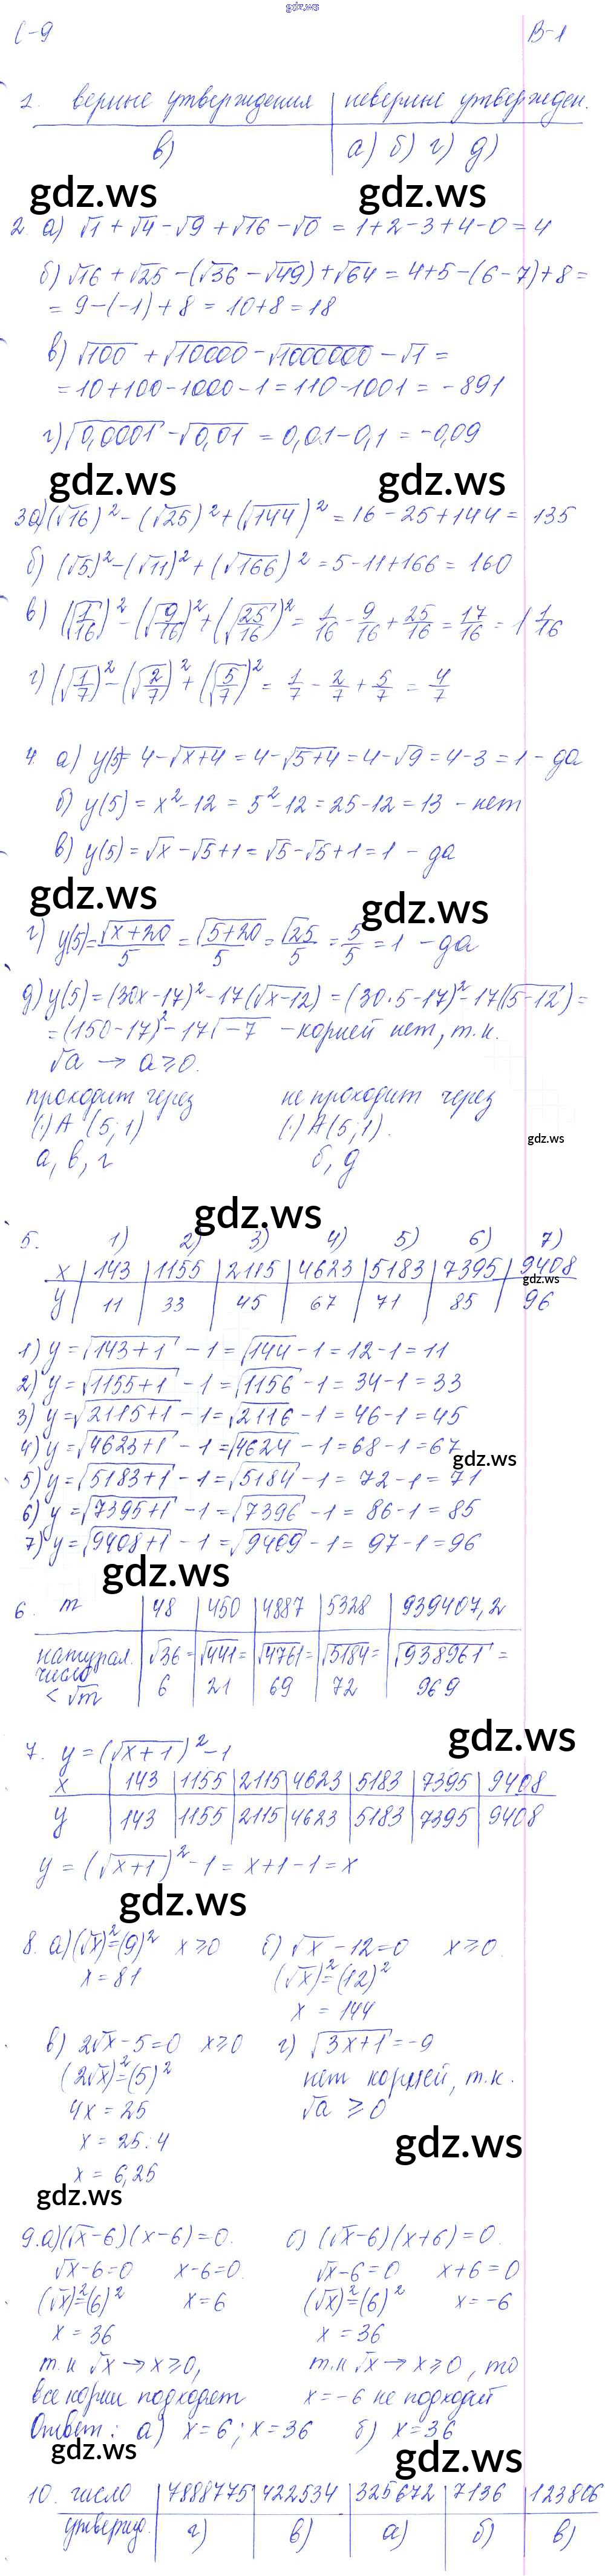 gdz.ws
С-9 В-1
1. верные утверждения | неверные утвержден.
в) | а) б) г) д)
gdz.ws gdz.ws
2. а) √1 + √4 - √9 + √16 - √0 = 1+2-3+4-0=4
б) √16 + √25 - (√36 - √49) + √64 = 4+5-(6-7)+8=
= 9-(-1)+8 = 10+8=18
в) √100 + √10000 - √1000000 - √1 =
=10+100-1000-1=110-1001= -891
г) √0,0001 - √0,01 = 0,01-0,1 = -0,09
gdz.ws gdz.ws
3а) (√16)² - (√25)² + (√144)² = 16 - 25 + 144 = 135
б) (√5)² - (√11)² + (√166)² = 5-11+166 = 160
в) (√1/16)² - (√9/16)² + (√25/16)² = 1/16 - 9/16 + 25/16 = 17/16 = 1 1/16
г) (√1/7)² - (√2/7)² + (√5/7)² = 1/7 - 2/7 + 5/7 = 4/7
4. а) y(5)= 4-√x+4 = 4-√5+4 = 4-√9 = 4-3 = 1 - да
б) y(5) = x²-12 = 5²-12 = 25-12 = 13 - нет
в) y(5) = √x - √5+1 = √5-√5+1 = 1 - да
gdz.ws gdz.ws
г) y(5)= √x+20/5 = √5+20/5 = √25/5 = 5/5 = 1 - да
д) y(5) = (30x-17)² - 17(√x-12) = (30·5-17)² - 17(√5-12) =
= (150-17)² - 17√-7 - корней нет, т.к.
√a → a≥0.
проходит через не проходит через
(·) A (5;1) (·) A(5;1).
gdz.ws
а, в, г б, д
gdz.ws
5. 1) 2) 3) 4) 5) 6) 7)
x | 143 | 1155 | 2115 | 4623 | 5183 | 7395 | 9408
gdz.ws
y | 11 | 33 | 45 | 67 | 71 | 85 | 96
1) y = √143+1 - 1 = √144 - 1 = 12-1 = 11
2) y = √1155+1 - 1 = √1156 - 1 = 34-1 = 33
3) y = √2115+1 - 1 = √2116 - 1 = 46-1 = 45
4) y = √4623+1 - 1 = √4624 - 1 = 68-1 = 67
gdz.ws
5) y = √5183+1 - 1 = √5184 - 1 = 72-1 = 71
6) y = √7395+1 - 1 = √7396 - 1 = 86-1 = 85
7) y = √9408+1 - 1 = √9409 - 1 = 97-1 = 96
gdz.ws
6. m | 48 | 450 | 4887 | 5328 | 939407,2
натурал. | √36= | √441= | √4761= | √5184= | √938961 =
число
< √m | 6 | 21 | 69 | 72 | 969
gdz.ws
7. y = (√x+1)² - 1
x | 143 | 1155 | 2115 | 4623 | 5183 | 7395 | 9408
y | 143 | 1155 | 2115 | 4623 | 5183 | 7395 | 9408
y = (√x+1)² - 1 = x+1-1 = x
gdz.ws
8. а) (√x)²=(9)² x≥0 б) √x - 12=0 x≥0.
x = 81 (√x)²=(12)²
x = 144
в) 2√x - 5=0 x≥0 г) √3x+1 = -9
(2√x)²=(5)² нет корней, т.к.
4x = 25 √a ≥ 0
x = 25:4
gdz.ws
x = 6,25
gdz.ws
9. а) (√x-6)(x-6)=0. б) (√x-6)(x+6)=0
√x-6=0 x-6=0. √x-6=0 x+6=0
(√x)²=(6)² x=6 (√x)²=(6)² x=-6
x = 36 x = 36
т.к √x → x≥0, т.к √x → x≥0, то
все корни подходят x=-6 не подходит
Ответ: а) x=6; x=36 б) x=36
gdz.ws gdz.ws
10. число | 7888775 | 422534 | 325672 | 7136 | 123806
утвержд. | г) | в) | а) | б) | в)